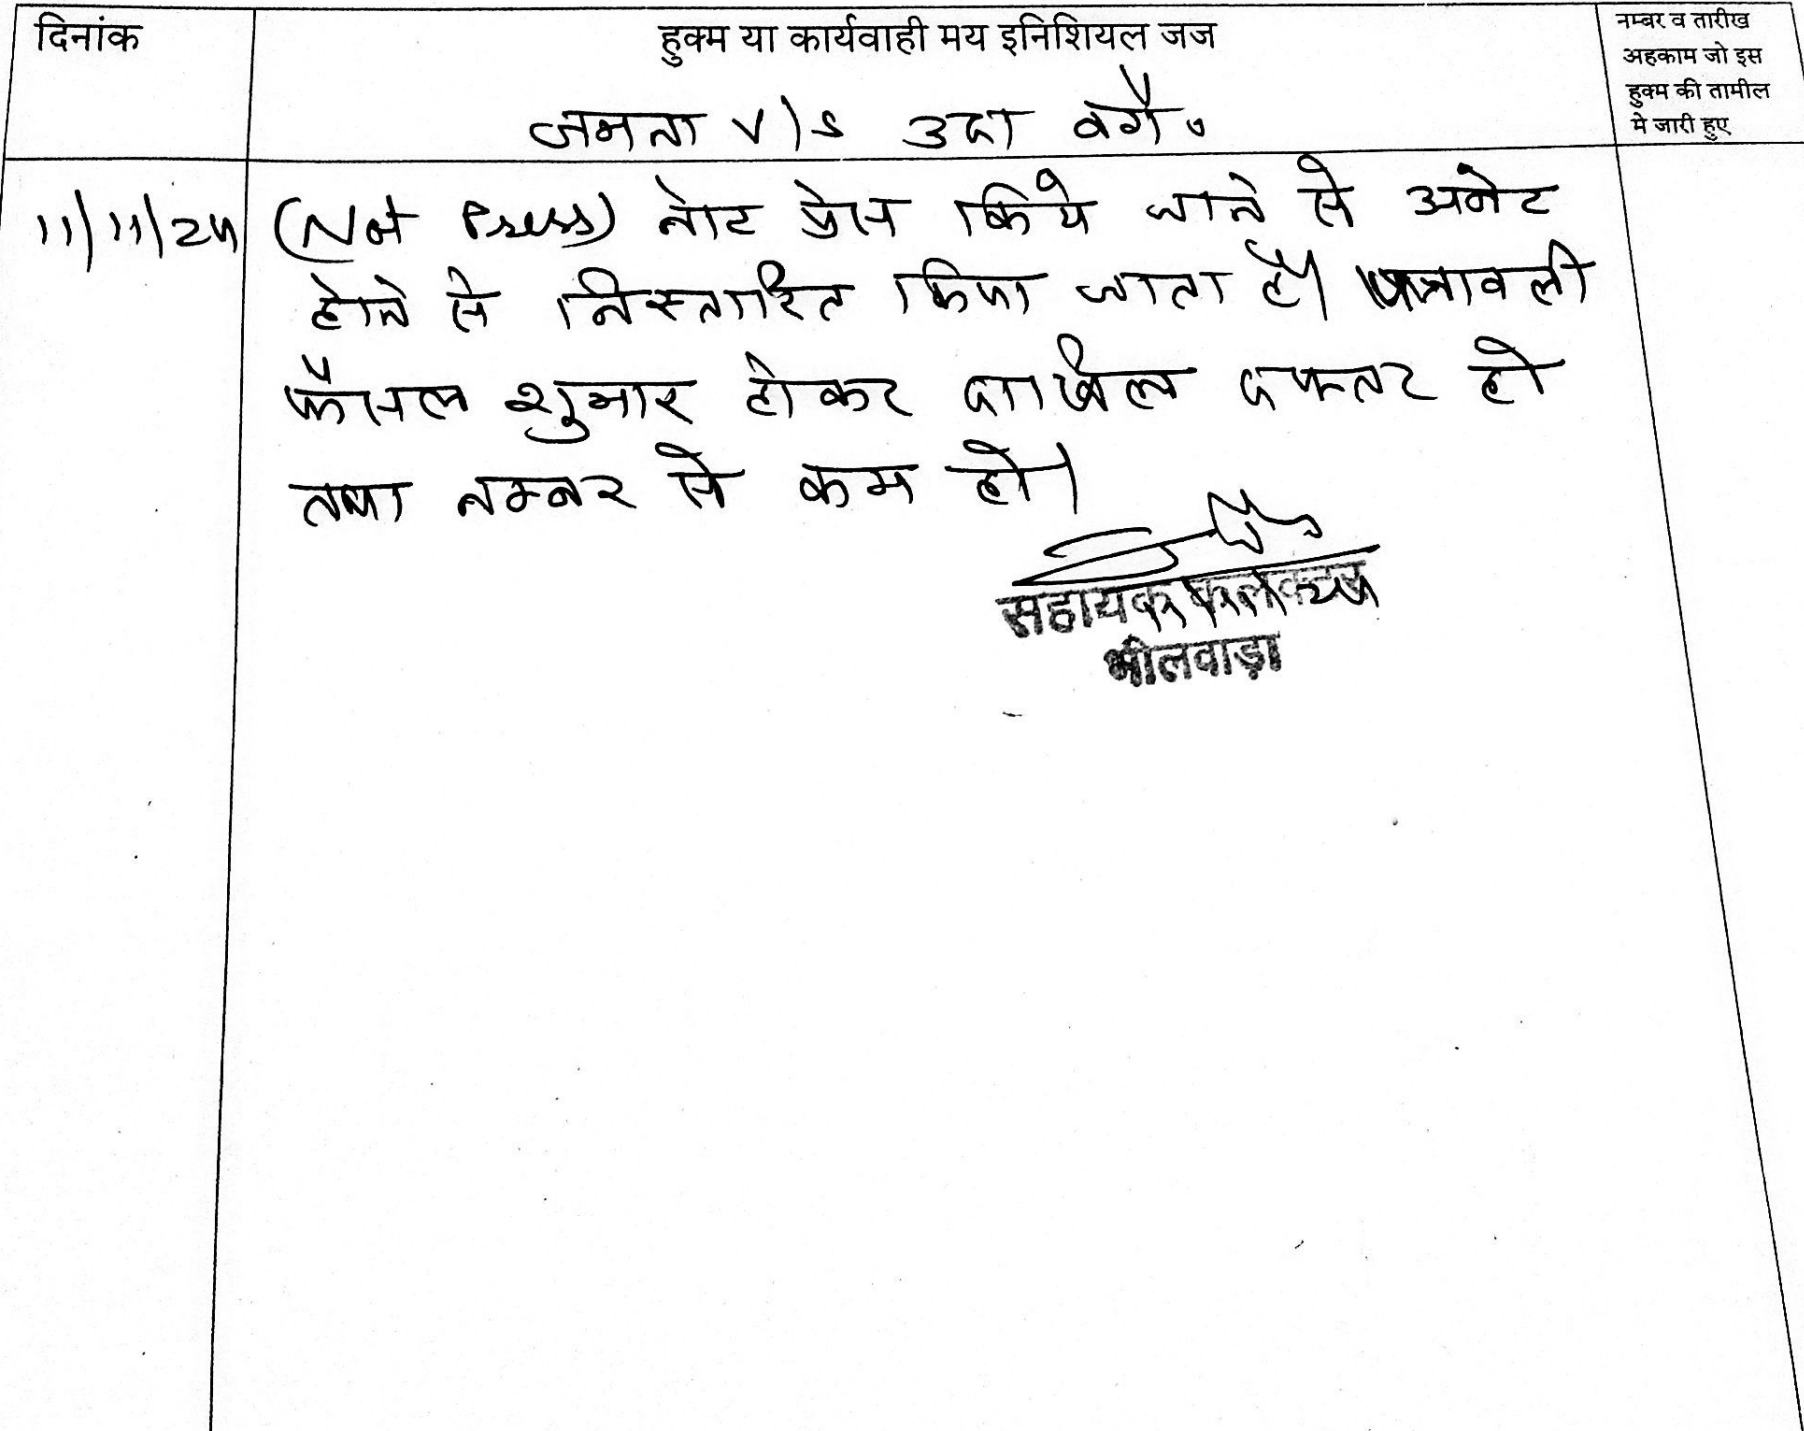 दिनांक
हुक्म या कार्यवाही मय इनिशियल जज
नम्बर व तारीख
अहकाम जो इस
हुक्म की तामील
मे जारी हुए
जमना V/S उदा वगै.
11/11/24
(Not Press) नोट प्रेस किये जाने से अबेट
होने से निस्तारित किया जाता है। पत्रावली
फैसल शुमार होकर दाखिल दफ्तर हो
तथा नम्बर से कम हो।
सहायक कलेक्टर
भीलवाड़ा